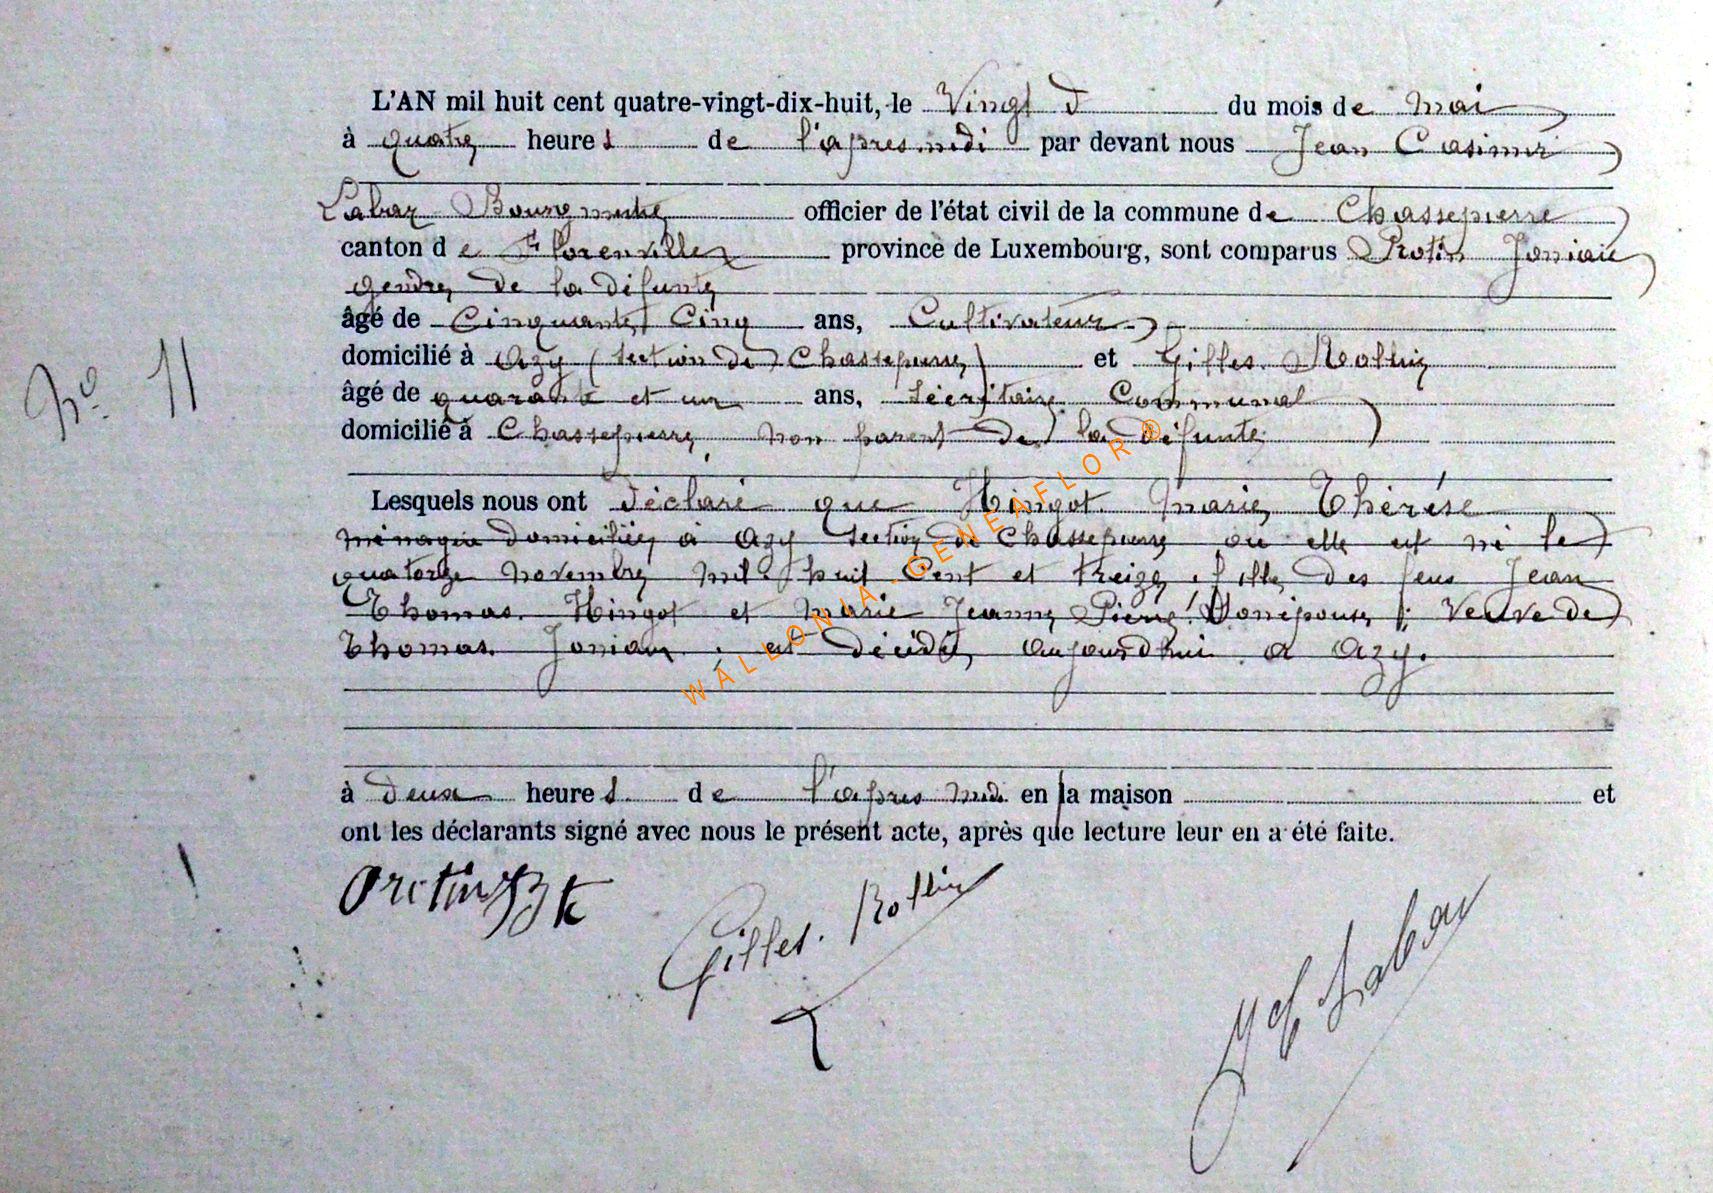 L'AN mil huit cent quatre-vingt-dix-huit, le Vingt du mois de Mai
à quatre heures de l'apres midi par devant nous Jean Casimir
Labar Bourgmestre officier de l'état civil de la commune de Chassepierre
canton de Florenville province de Luxembourg, sont comparus Protin
gendre de la défunte
âgé de Cinquante Cinq ans, Cultivateur
domicilié à Azy (section de Chassepierre) et Gilles Rollin
âgé de quarante et un ans, Sécrétaire Communal
domicilié à Chassepierre, non parent de la défunte
No 11
Lesquels nous ont déclaré que Hingot Marie Thérése
ménagère domiciliée à Azy section de Chassepierre où elle est né le
quatorze novembre mil huit Cent et treize, fille des feus Jean
Thomas Hingot et Marie Jeanne Pierre veuve de
Thomas est décédée aujourdhui a Azy.
WALLONIA-GENEAFLOR®
à deux heures de l'apres midi en la maison et
ont les déclarants signé avec nous le présent acte, après que lecture leur en a été faite.
Gilles. Rollin
JC Labar